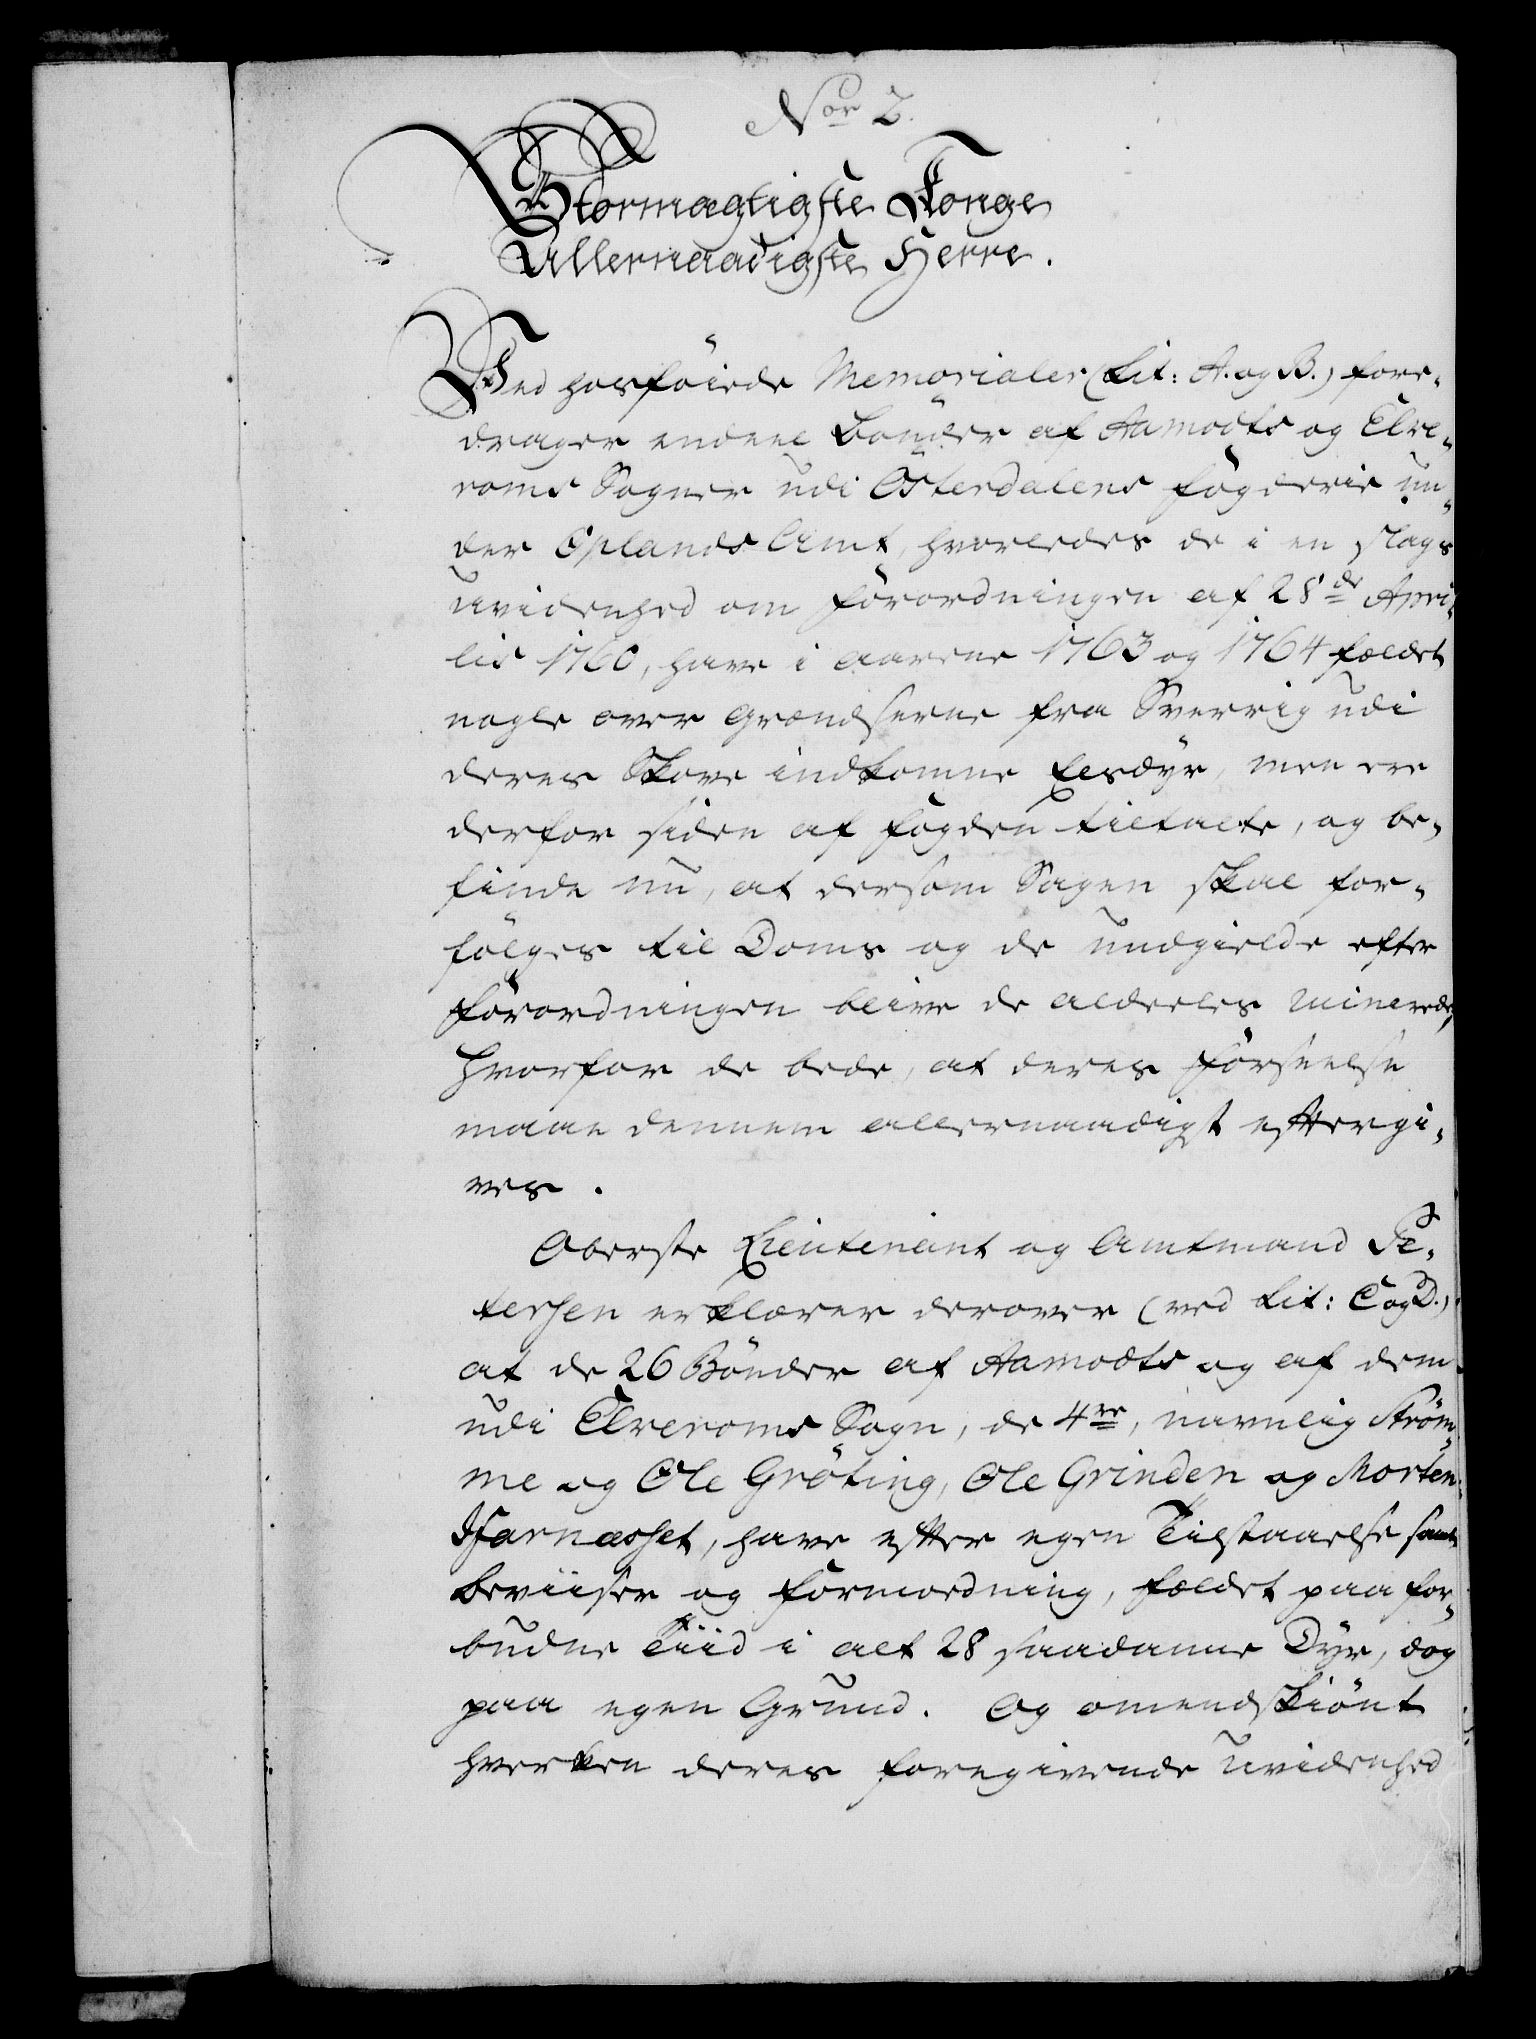 Nor 2.
Stormægtigste Konge
Allernaadigste Herre.
Ved hosføiede Memorialer (Lit: A. og B.) fore-
drager endeel Bønder af Aamodts og Elve-
roms Sogner udi Østerdalens Fogderie un-
der Oplands Amt, hvorledes de i en slags
Uvidenhed om Forordningen af 28de Apri-
lis 1760, have i Aarene 1763 og 1764 fældet
nogle over Grændserne fra Sverrig udi
deres Skove indkomne Elsdyr, men ere
derfor siden af Fogden tiltalte, og be-
finde nu, at dersom Sagen skal for-
følges til Doms og de undgielde efter
Forordningen blive de aldeeles ruinerede,
Hvorfor de bede, at deres Forseelse
maae dennem allernaadigst eftergi-
ves.
Oberste Lieutenant og Amtmand Pe-
tersen erklærer derover (ved Lit: C og D.)
at de 26 Bønder af Aamodts og af dem
udi Elveroms Sogn, de 4re, navnlig Strøm-
me og Ole Grøting, Ole Grinden og Morten
Hjarnæsset, have efter egen Tilstaaelse samt
Beviiser og Formordning, fældet paa for-
budne Tiid i alt 28 saadanne Dyr, dog
paa egen Grund. Og omendskiønt
hverken deres foregivende Uvidenhed